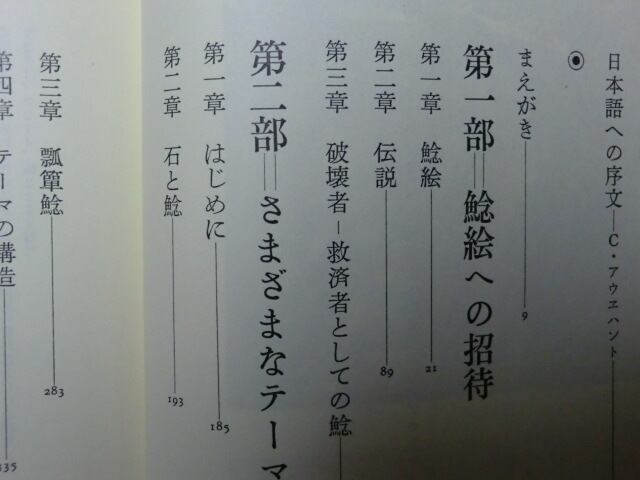 日本語への序文―C・アウエハント
◉
まえがき 9
第一部＝鯰絵への招待
第一章 鯰絵 21
第二章 伝説 89
第三章 破壊者－救済者としての鯰
第二部＝さまざまなテーマ
第一章 はじめに 185
第二章 石と鯰 193
第三章 瓢箪鯰 283
第四章 テーマの構造 335